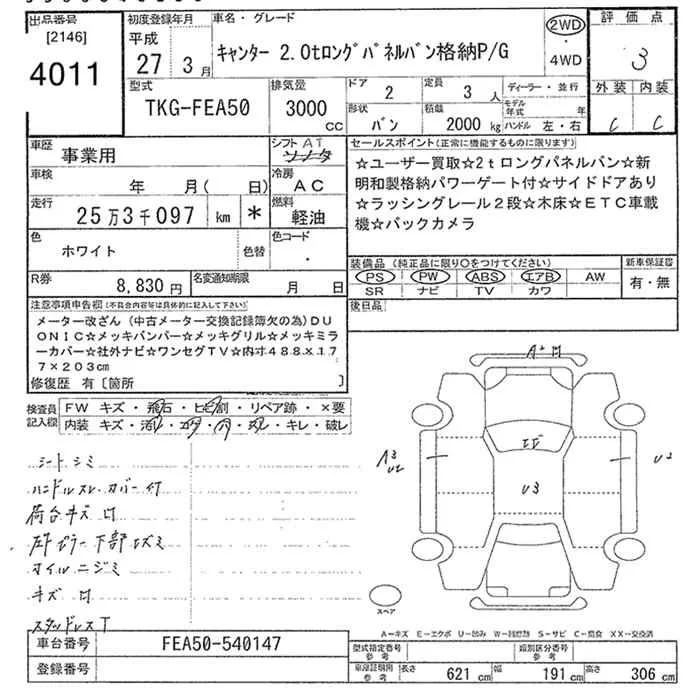 出品番号
[2146]
4011
初度登録年月
平成
27 3月
車名・グレード
キャンター 2.0tロングパネルバン格納P/G
2WD
・
4WD
評価点
3
外装 内装
C C
型式
TKG-FEA50
排気量
3000
cc
ドア
2
定員
3 人
形状
バン
積載
2000 kg
ディーラー・並行
モデル年式 年
ハンドル 左・右
車歴
事業用
シフト AT
車検
年 月( 日)
冷房
AC
走行
25万3千097 km *
燃料
軽油
色
ホワイト
色替
色コード
・
R券
8,830円
名変通知期限
月 日
セールスポイント(正常に機能するものに限ります)
☆ユーザー買取☆2tロングパネルバン☆新
明和製格納パワーゲート付☆サイドドアあり
☆ラッシングレール2段☆木床☆ETC車載
機☆バックカメラ
装備品(純正品に限り○をつけてください)
PS PW ABS エアB AW
SR ナビ TV カワ
新車保証書
有・無
後日品
注意事項申告欄(不具合内容等は具体的に記入して下さい)
メーター改ざん(中古メーター交換記録簿欠の為)DU
ONIC☆メッキバンパー☆メッキグリル☆メッキミラ
ーカバー☆社外ナビ☆ワンセグTV☆内寸488×17
7×203cm
修復歴 有〔箇所 〕
検査員
記入欄
FW キズ・飛石・ヒビ割・リペア跡・×要
内装 キズ・汚レ・コゲ・穴・スレ・キレ・破レ
シートシミ
ハンドルスレ・カバー付
荷台キズ凹
左ピラー下部エズミ
オイルニジミ
キズ 凹
スタッドレスT
A凹
A3
U2
U3
U2
スペア
A-キズ E-エクボ U-凹み W-凹修理跡 S-サビ C-腐食 XX-交換済
車台番号
FEA50-540147
登録番号
型式指定番号
参考
類別区分番号
参考
車庫証明用
参考
長さ 621 cm 幅 191 cm 高さ 306 cm